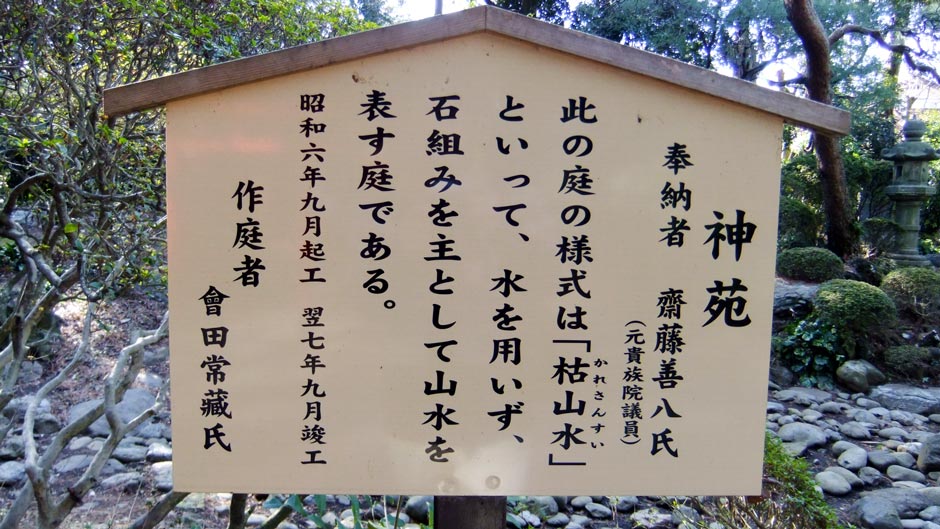 神苑
奉納者 齋藤善八氏
（元貴族院議員）
此の庭の様式は「枯山水」
かれさんすい
といって、水を用いず、
石組みを主として山水を
表す庭である。
昭和六年九月起工 翌七年九月竣工
作庭者
會田常藏氏